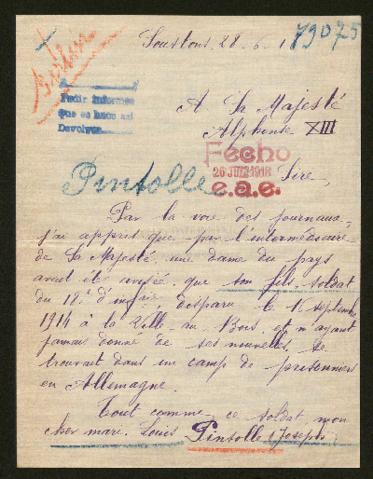 Soustons, 28-6-1
79075
Pedir informes
que se hace así
Devolver
A Sa Majesté
Alphonse XIII
Fecho
26 1918
e.a.e.
Pintolle
Sire,
Par la voie des journaux,
j'ai appris que par l'intermédiaire
de Sa Majesté, une dame du pays
avait été avisée que son fils, soldat
du 18e d'infrie, disparu le 16 septembre
1914 à la Ville-au-Bois, et n'ayant
jamais donné de ses nouvelles, se
trouvait dans un camp de prisonniers
en Allemagne.
Tout comme ce soldat mon
cher mari, Louis Pintolle (Joseph)